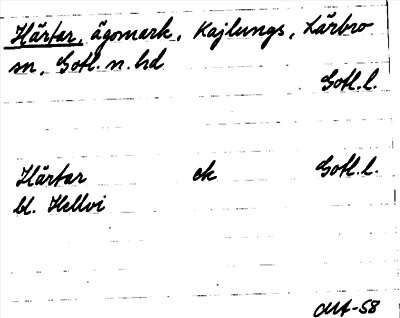 Härtar, ägomark, Kajlungs, Lärbro
sn, Gotl. n. hd
Gotl. l.
Härtar ek Gotl. l.
bl. Hellvi
-58